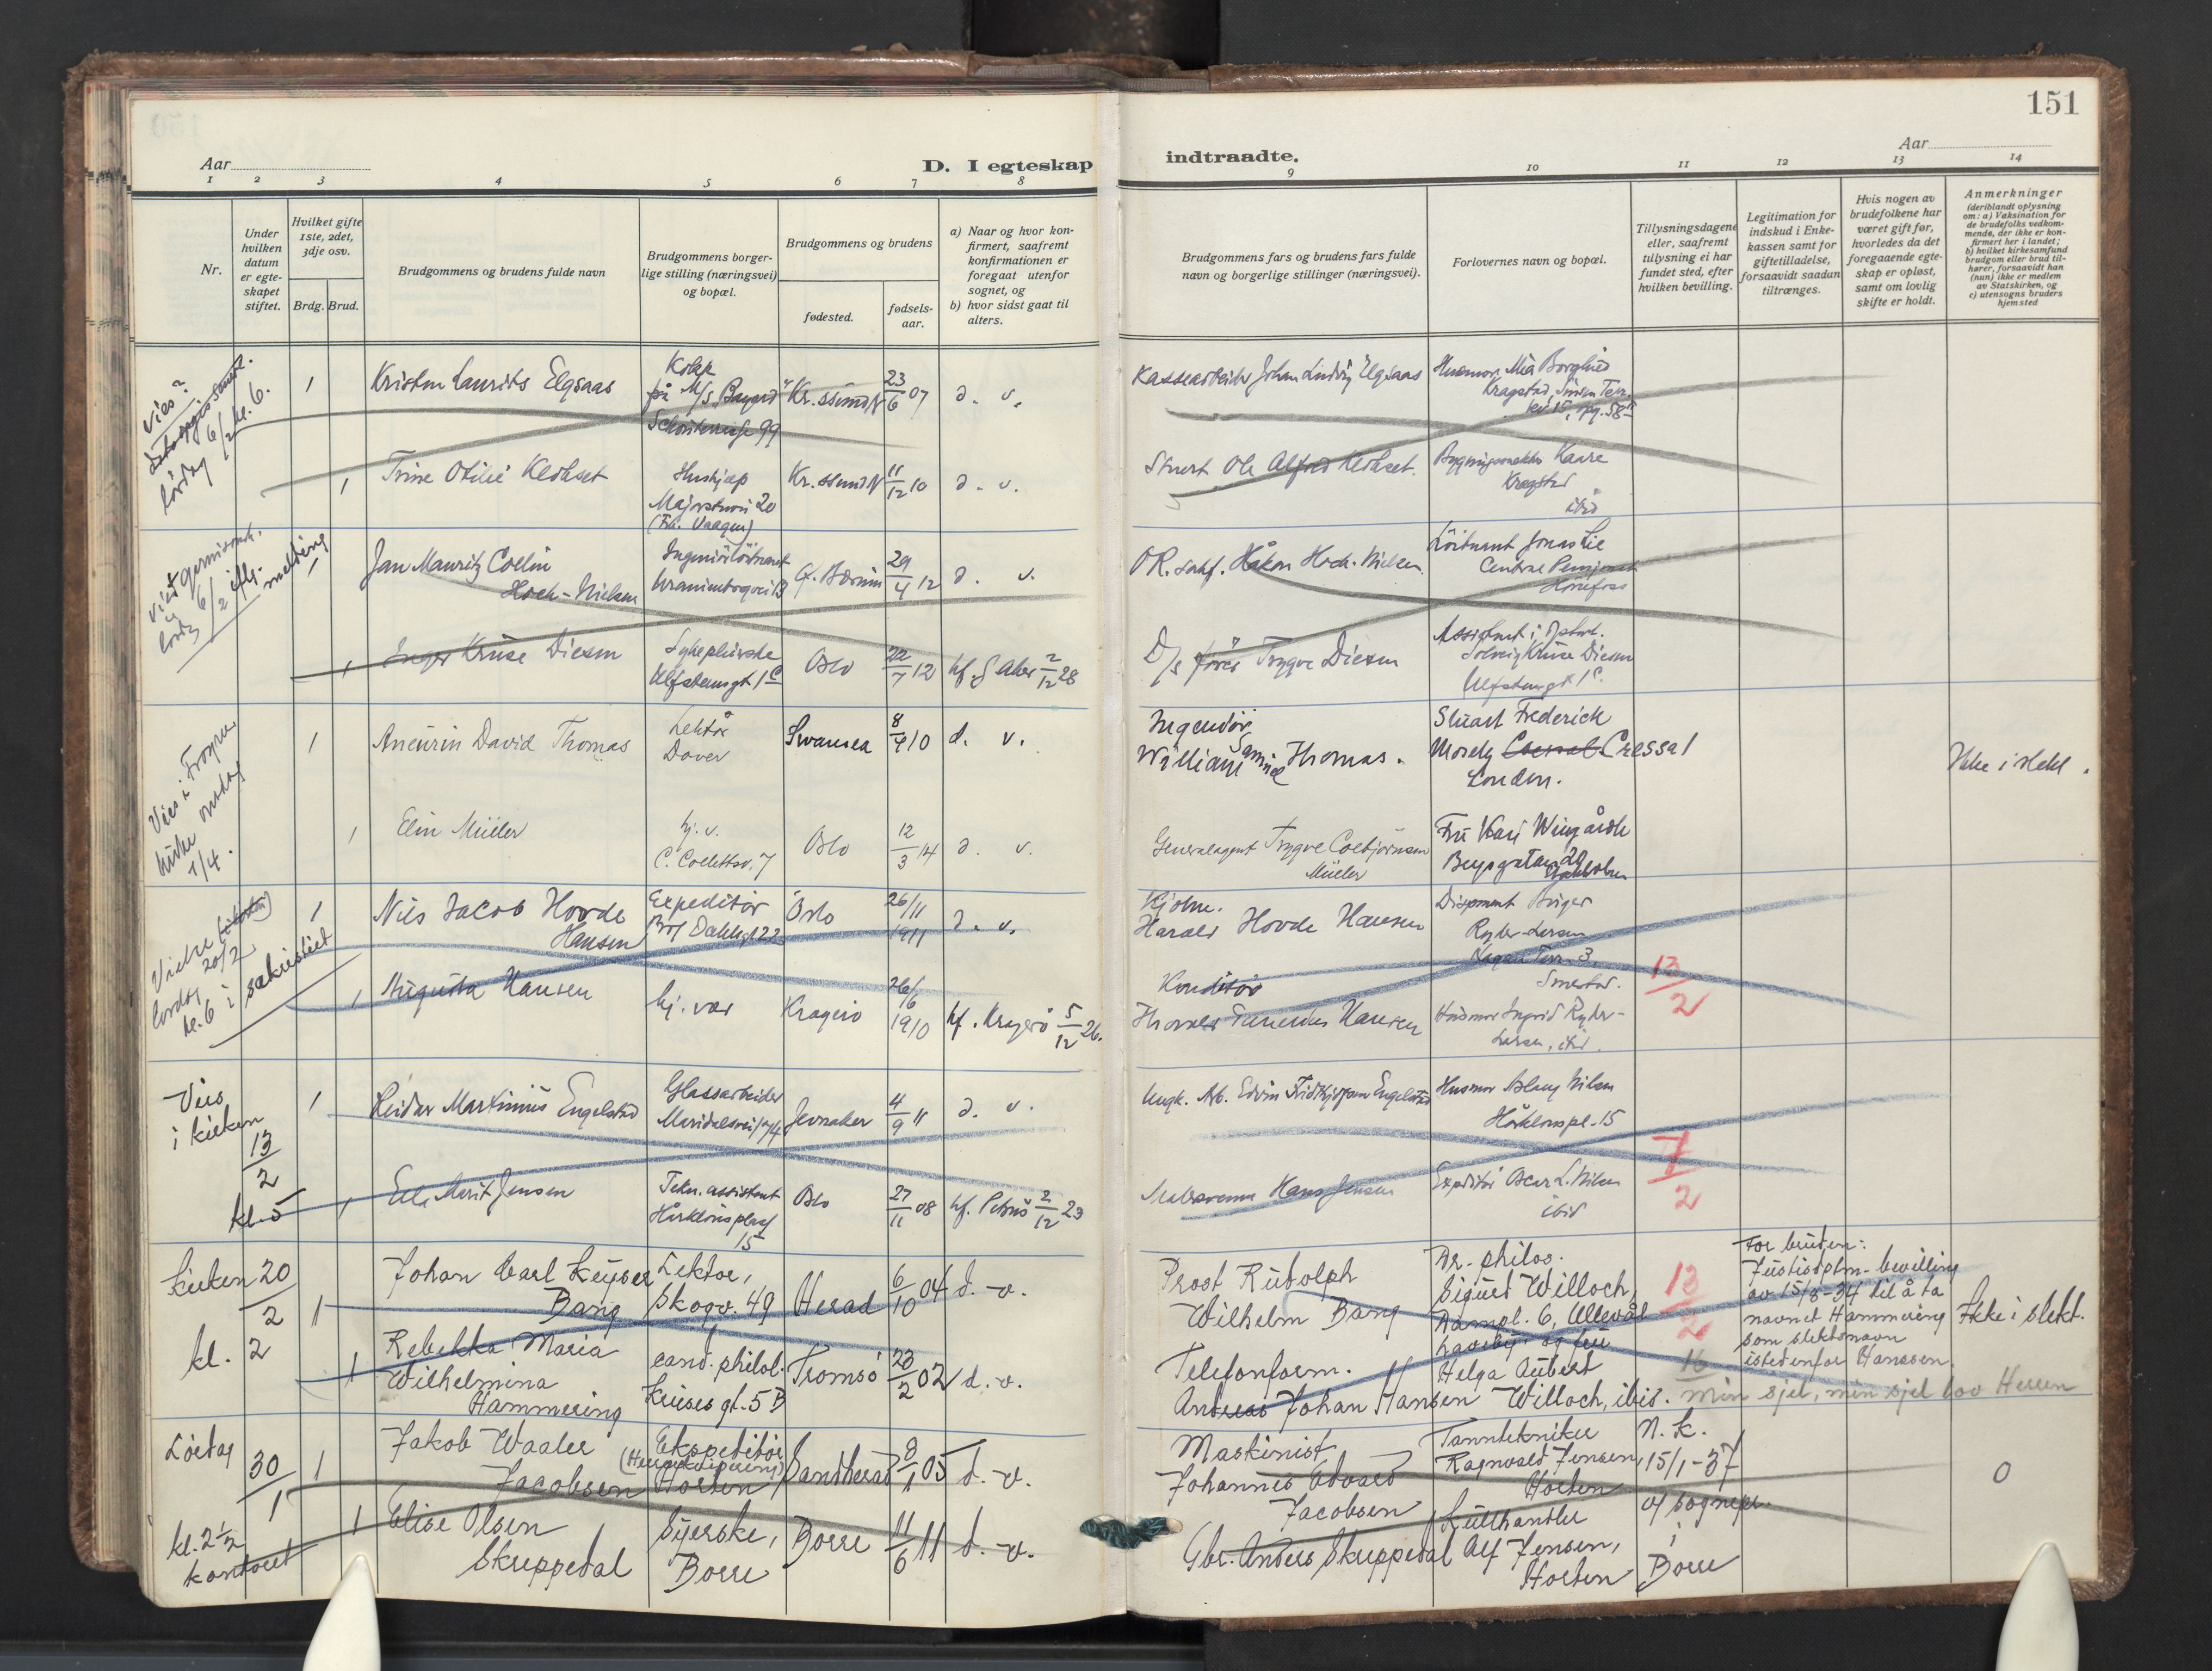 151
Aar
D. I egteskap
indtraadte.
Aar
1 2 3 4 5 6 7 8
9 10 11 12 13 14
Nr.
Under hvilken datum er egteskapet stiftet.
Hvilket gifte 1ste, 2det, 3dje osv.
Brdg. Brud.
Brudgommens og brudens fulde navn
Brudgommens borgerlige stilling (næringsvei) og bopæl.
Brudgommens og brudens
fødested.
fødselsaar.
a) Naar og hvor konfirmert, saafremt konfirmationen er foregaat utenfor sognet, og
b) hvor sidst gaat til alters.
Brudgommens fars og brudens fars fulde navn og borgerlige stillinger (næringsvei).
Forlovernes navn og bopæl.
Tillysningsdagene eller, saafremt tillysning ei har fundet sted, efter hvilken bevilling.
Legitimation for indskud i Enkekassen samt for giftetilladelse, forsaavidt saadan tiltrænges.
Hvis nogen av brudefolkene har været gift før, hvorledes da det foregaaende egteskap er opløst, samt om lovlig skifte er holdt.
Anmerkninger
(deriblandt oplysning om: a) Vaksination for de brudefolks vedkommende, der ikke er konfirmert her i landet; b) hvilket kirkesamfund brudgom eller brud tilhører, forsaavidt han (hun) ikke er medlem av Statskirken, og c) utensogns bruders hjemsted
Vies?
lørdag 6/2 kl. 6.
1
Kristen Laurits Elgsaas
Kokk
på M/s "Bayard"
99
Kr.ssund N
23/6 07
d. v.
Johan Ludvig Elgsaas
Husmor Mia Borghild
Kragstad, Sinsen Terr.
1
Trine Otilie Kleihset
Hushjælp
Majorstuvei 20
(Fra. Vaagen)
Kr.ssund N
11/12 10
d. v.
Stuert Ole Alfred Kleihset.
Kaare
Kragstad
ibid
viet
6/2 iflg. melding
1
Jan Mauritz Collin
Hoch-Nielsen
Ingeniørløitnant
Uranienborgvei 13
V. Bærum
29/4 12
d. v.
OR. sakf. Håkon Hoch-Nielsen.
Löitnant Jonas Lie
Central Pensjonat
Hönefoss
1
Inger Kruse Diesen
Sykepleierske
Ulfstensgt 1 C
Oslo
22/7 12
kf. V Aker 2/12 28
D/s fører Trygve Diesen
Solveig Kruse Diesen
Ulfstensgt 1 C.
Vies i Frogner
kirke onsdag
7/4.
1
Aneurin David Thomas
Lektor
Dover
Swansea
8/4 10
d. v.
Ingeniör
William Samuel Thomas.
Stuart Frederick
Mosely Cressal
London.
Ikke i slekt.
1
Elin Müller
hj. v.
C. Collettsv. 7
Oslo
12/3 14
d. v.
Generalagent Trygve Colbjörnsen
Müller
Fru Kari Wingårdh
Bergsgatan 20
Stockholm
lørdag 20/2
kl. 6 i sakristiet
1
Nils Jacob Hovde
Hansen
Expeditör
Prof Dahlsgt 22
Oslo
26/11 1911
d. v.
Kjøbm.
Harald Hovde Hansen
Disponent Birger
Ryder-Larsen
Terr. 3.
Smestad.
13/2
1
Augusta Hansen
hj. vær
Kragerö
26/6 1910
kf. Kragerö 5/12 26.
Konditör
Hansen
Husmor Ingrid Ryder-
Larsen, ibid.
Vies
i kirken
13/2
kl. 5
1
Reidar Martinius Engelstad
Glassarbeider
Maridalsvei 174
Jevnaker
4/9 11
d. v.
Ungk. Arb. Edvin Fridthjof Engelstad
Husmor Aslaug Nilsen
Håklonspl. 15
7/2
1
Merit Jensen
Tekn. assistent
Håklonsplass
15
Oslo
27/11 08
kf. Petrus 2/12 23
Hans Jensen
Expeditör Oscar L. Nilsen
ibid
Kirken 20/2
kl. 2
1
Johan Carl Keyser
Bang
Lektor,
Skogv. 49
Herad
6/10 04
d. v.
Prost Rudolph
Wilhelm Bang
Dr. philos.
Sigurd Willoch,
Dampl. 6, Ullevål
haveby og fru
13/2
For bruden:
Justisdptm. bevilling
av 15/8-34 til å ta
navnet Hammering
som slektsnavn
istedenfor Hanssen.
Ikke i slekt.
1
Rebekka Maria
Wilhelmina
Hammering
cand. philol.
Kruses gt. 5 B
Tromsö
23/2 02
d. v.
Telefonform.
Andreas Johan Hansen
Helga Aubert
Willoch, ibid.
16
min sjel, min sjel lov Herren
Lördag
30/1
kl. 2 1/2
kontoret
1
Jakob Waaler
Jacobsen
Ekspeditör
(Herreekvipering)
Horten
Sandherad
8/1 05
d. v.
Maskinist
Johannes Edvard
Jacobsen
Tanntekniker
Ragnvald Jensen,
Horten
N. K.
15/1-37
v/ sognepr.
i
Borre
0
1
Elise Olsen
Skreppedal
Syerske,
Borre
Borre
11/6 11
d. v.
Gbr. Anders Skreppedal
Kullhandler
Alf Jensen,
Horten